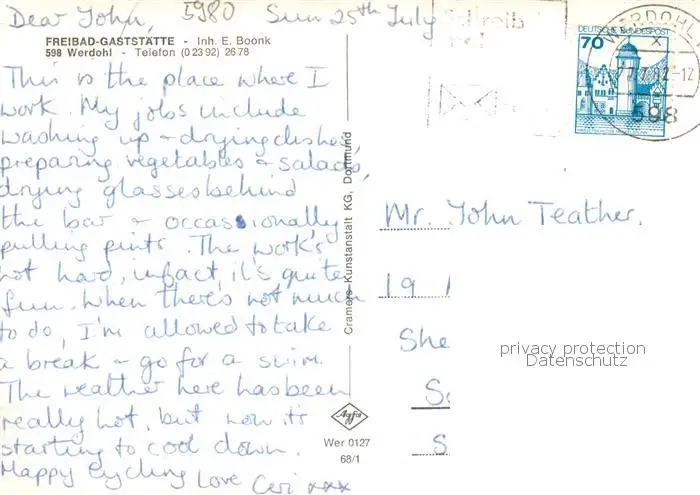 Dear John, 5980 Sun 25th July
FREIBAD-GASTSTÄTTE - Inh. E. Boonk
598 Werdohl - Telefon (0 23 92) 26 78
This is the place where I
work. My jobs include
washing up + drying dishes,
preparing vegetables + salads,
drying glasses behind
the bar + occassionally
pulling pints. The work's
not hard, infact, it's quite
fun. When there's not much
to do, I'm allowed to take
a break + go for a swim.
The weather here has been
really hot, but now it's
starting to cool down.
Happy Cycling Love Ceri xxx
Cramers-Kunstanstalt KG, Dortmund
Agfa
Wer 0127
68/1
Schreib
DEUTSCHE BUNDESPOST
70
WERDOHL
-12
598
Mr. John Teather.
19
She
S
privacy protection
Datenschutz